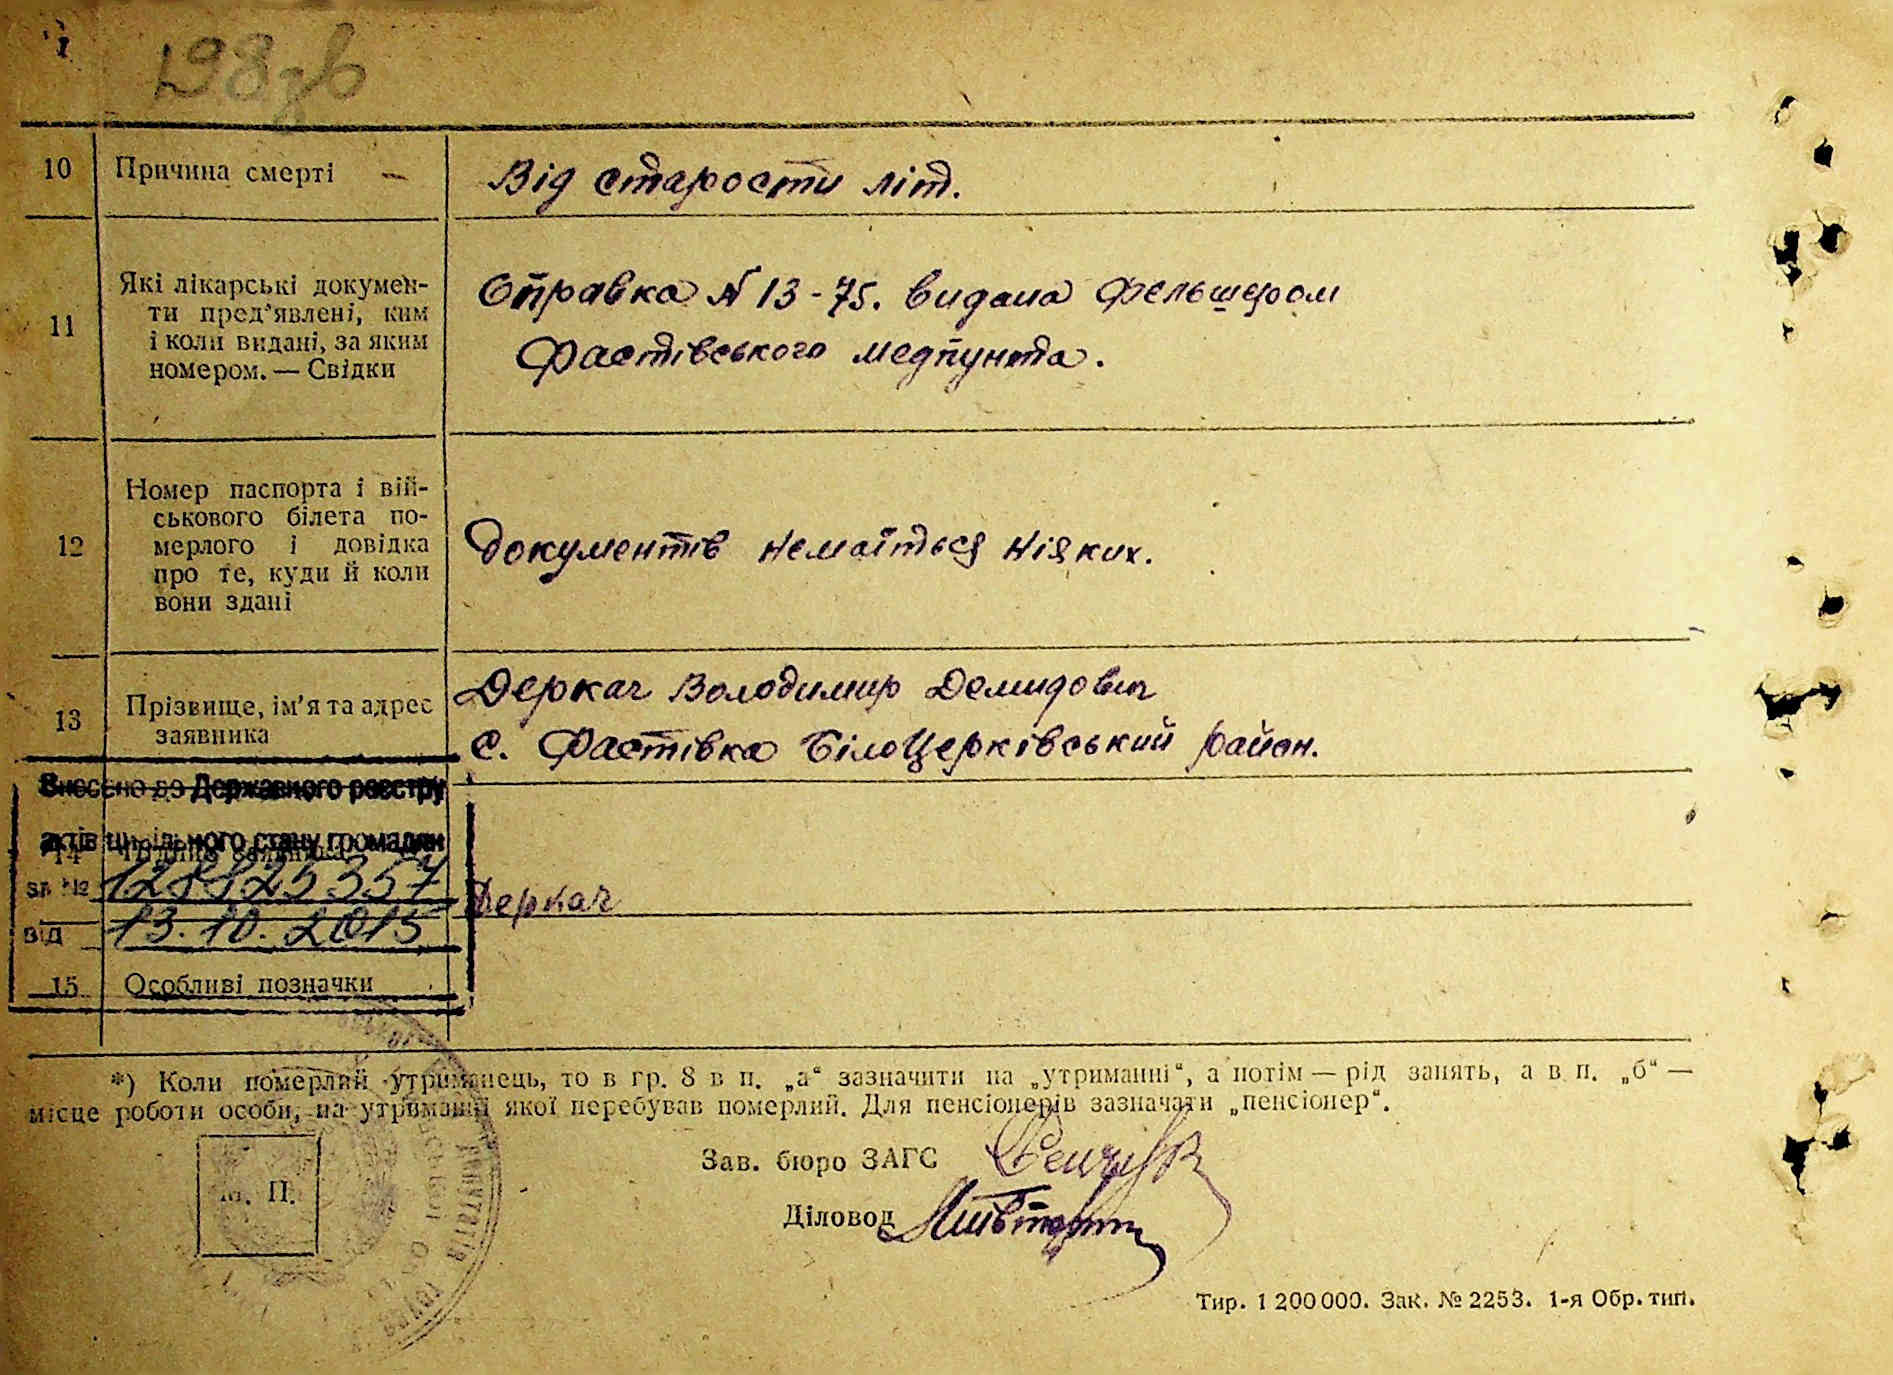 198зв
10 Причина смерті — Від старости літ.
11 Які лікарські докумен-
ти пред’явлені, ким
і коли видані, за яким
номером. — Свідки
Справка N 13-75. видана фельшером
Фастівського медпункта.
12 Номер паспорта і вій-
ськового білета по-
мерлого і довідка
про те, куди й коли
вони здані
Документів немаїться ніяких.
13 Прізвище, ім’я та адрес
заявника
Деркач Володимир Демидович
с. Фастівка БілоЦерківський район.
Внесено до Державного реєстру
актів цивільного стану громадян
14
за №
від 13.10.2015
Деркач
15 Особливі позначки
*) Коли померлий утриманець, то в гр. 8 в п. „а“ зазначити на „утриманні“, а потім — рід занять, а в п. „б“ —
місце роботи особи, на утриманні якої перебував померлий. Для пенсіонерів зазначати „пенсіонер“.
Зав. бюро ЗАГС
М. П.
Діловод
Тир. 1 200 000. Зак. № 2253. 1-я Обр. тип.